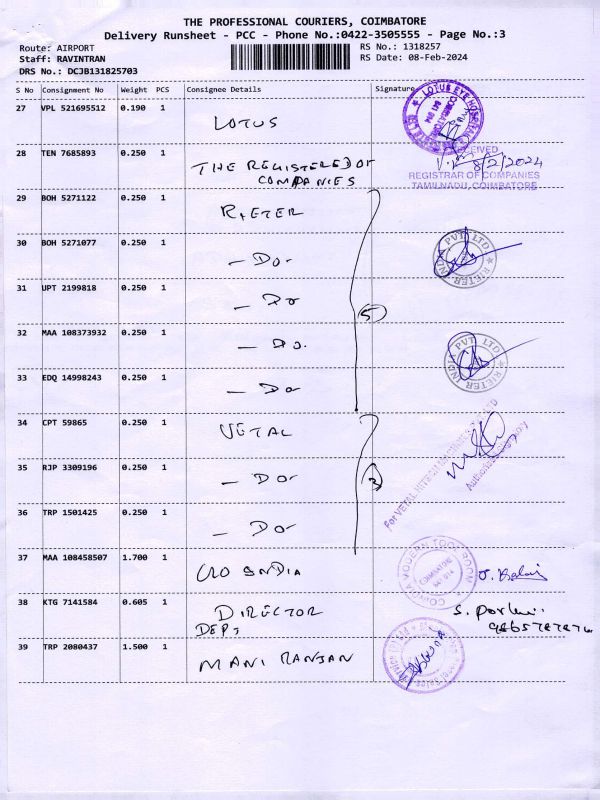 THE PROFESSIONAL COURIERS, COIMBATORE
Delivery Runsheet - PCC - Phone No.:0422-3505555 - Page No.:3
Route: AIRPORT
RS No.: 1318257
Staff: RAVINTRAN
RS Date: 08-Feb-2024
DRS No.: DCJB131825703
S No Consignment No Weight PCS Consignee Details Signature
27 VPL 521695512 0.190 1 LOTUS
LOTUS EYE HOSPITAL
28 TEN 7685893 0.250 1 THE REGISTERED OF
COMPANIES
8/2/2024
REGISTRAR OF COMPANIES
TAMILNADU, COIMBATORE
29 BOH 5271122 0.250 1 RIETER
30 BOH 5271077 0.250 1 - DO -
RIETER INDIA PVT LTD
31 UPT 2199818 0.250 1 - DO
(5)
32 MAA 108373932 0.250 1 - DO.
33 EDQ 14998243 0.250 1 - DO
RIETER INDIA PVT LTD
34 CPT 59865 0.250 1 VETAL
For VETAL HITECH MACHINES PVT LTD
Authorised Signatory
35 RJP 3309196 0.250 1 - DO -
(3)
36 TRP 1501425 0.250 1 - DO -
37 MAA 108458507 1.700 1 CRO INDIA
MODERN TOOL ROOM
COIMBATORE
38 KTG 7141584 0.605 1 DIRECTOR
DEPT
39 TRP 2080437 1.500 1 MANI RANJAN